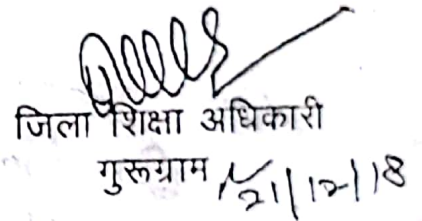 जिला शिक्षा अधिकारी
गुरूग्राम 21/12/18